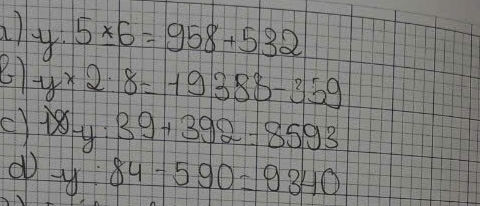 a) y · 5 × 6 = 958 + 532
b) y × 2 · 8 = 19388 - 359
c) y · 39 + 392 = 8593
d) y : 84 - 590 = 9340